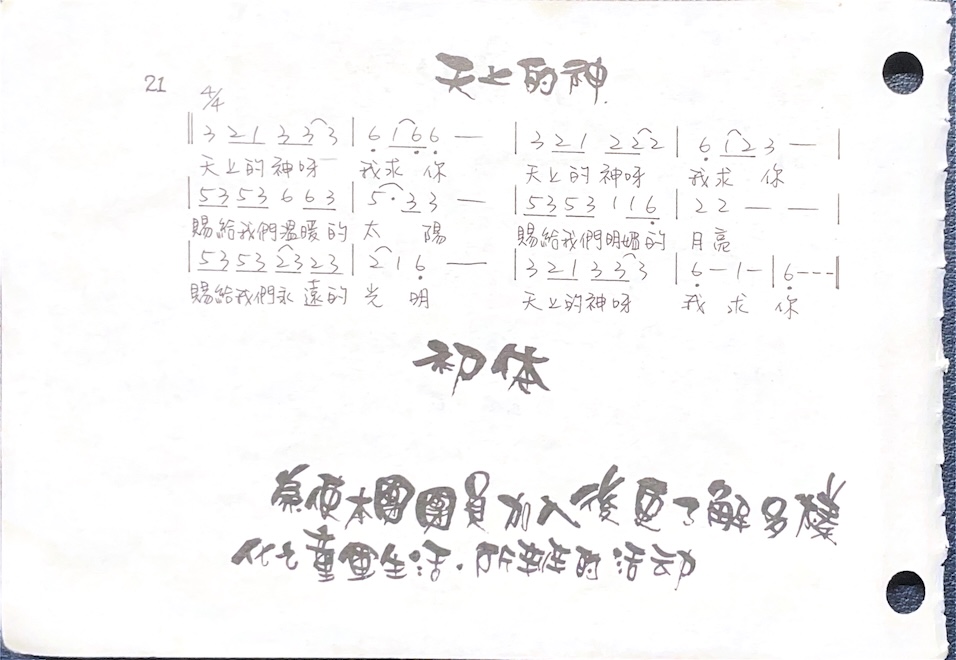 天上的神
21 4/4
‖3 21 33 3 | 6 166 — | 3 21 22 2 | 6 123 — |
天上的神呀 我求你 天上的神呀 我求你
|5353 6 63 | 5·33 — | 5353 1 16 | 22 — — |
賜給我們溫暖的太陽 賜給我們明媚的月亮
|5353 2323 | 216 — | 3 21 33 3 | 6-1- | 6---‖
賜給我們永遠的光明 天上的神呀 我求你
初体
為使本團團員加入後更了解多樣
化之童軍生活.所舉辦的活动